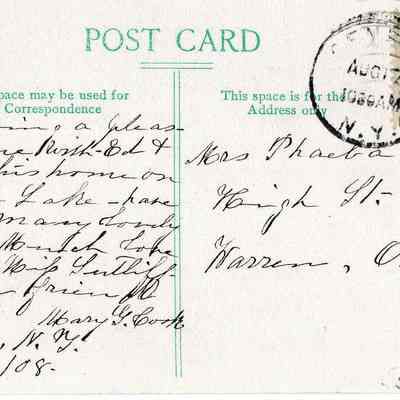 POST CARD
space may be used for
Correspondence
This space is for the
Address only
AUG 17
1030AM
N.Y.
a pleas-
North-Ed &
his home on
Lake - have
many lovely
Much love
Miss Sutliff-
friend
Mary G. Cook
N.Y.
/08.
Mrs Phaeba
High St.
Warren, O